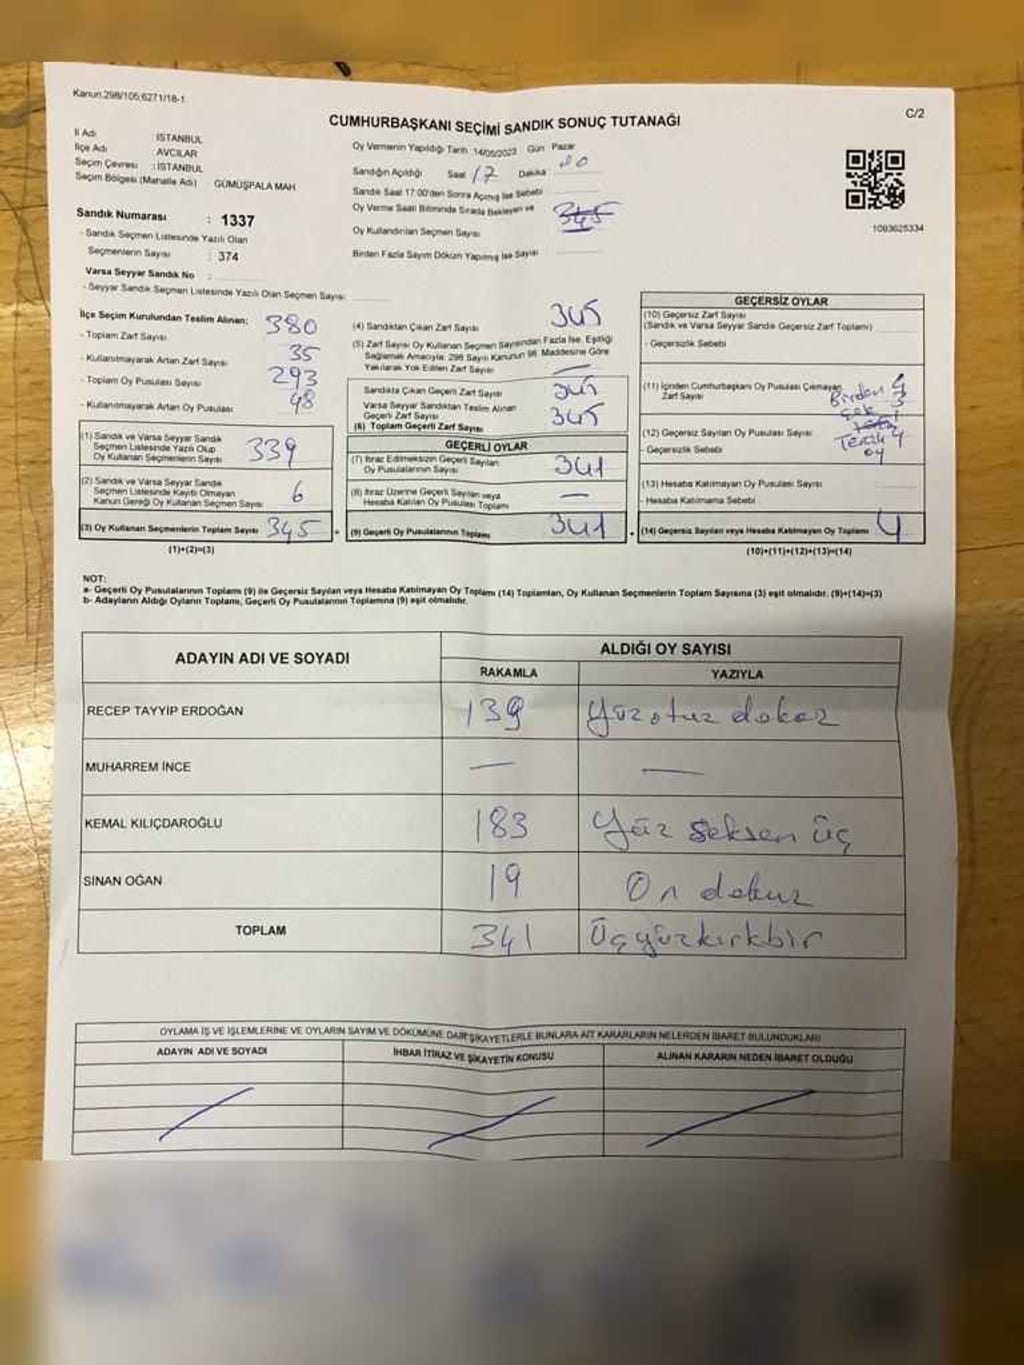 Kanun.298/105;6271/18-1
C/2
CUMHURBAŞKANI SEÇİMİ SANDIK SONUÇ TUTANAĞI
İl Adı : İSTANBUL
İlçe Adı : AVCILAR
Seçim Çevresi : İSTANBUL
Seçim Bölgesi (Mahalle Adı) GÜMÜŞPALA MAH
Sandık Numarası : 1337
- Sandık Seçmen Listesinde Yazılı Olan
Seçmenlerin Sayısı : 374
Varsa Seyyar Sandık No :
- Seyyar Sandık Seçmen Listesinde Yazılı Olan Seçmen Sayısı:
Oy Vermenin Yapıldığı Tarih :14/05/2023 Gün Pazar
Sandığın Açıldığı Saat 17 Dakika 00
Sandık Saat 17:00'den Sonra Açılmış İse Sebebi
Oy Verme Saati Bitiminde Sırada Bekleyen ve
Oy Kullandırılan Seçmen Sayısı 345
Birden Fazla Sayım Döküm Yapılmış İse Sayısı
1093625334
İlçe Seçim Kurulundan Teslim Alınan;
- Toplam Zarf Sayısı 380
- Kullanılmayarak Artan Zarf Sayısı 35
- Toplam Oy Pusulası Sayısı 293
- Kullanılmayarak Artan Oy Pusulası 48
(1) Sandık ve Varsa Seyyar Sandık
Seçmen Listesinde Yazılı Olup
Oy Kullanan Seçmenlerin Sayısı 339
(2) Sandık ve Varsa Seyyar Sandık
Seçmen Listesinde Kayıtlı Olmayan
Kanun Gereği Oy Kullanan Seçmen Sayısı 6
(3) Oy Kullanan Seçmenlerin Toplam Sayısı 345 =
(1)+(2)=(3)
(4) Sandıktan Çıkan Zarf Sayısı 345
(5) Zarf Sayısı Oy Kullanan Seçmen Sayısından Fazla İse, Eşitliği
Sağlamak Amacıyla; 298 Sayılı Kanunun 98. Maddesine Göre
Yakılarak Yok Edilen Zarf Sayısı —
Sandıkta Çıkan Geçerli Zarf Sayısı 345
Varsa Seyyar Sandıktan Teslim Alınan
Geçerli Zarf Sayısı
(6) Toplam Geçerli Zarf Sayısı 345
GEÇERLİ OYLAR
(7) İtiraz Edilmeksizin Geçerli Sayılan
Oy Pusulalarının Sayısı 341
(8) İtiraz Üzerine Geçerli Sayılan veya
Hesaba Katılan Oy Pusulası Toplamı —
(9) Geçerli Oy Pusulalarının Toplamı 341 +
GEÇERSİZ OYLAR
(10) Geçersiz Zarf Sayısı
(Sandık ve Varsa Seyyar Sandık Geçersiz Zarf Toplamı)
- Geçersizlik Sebebi
(11) İçinden Cumhurbaşkanı Oy Pusulası Çıkmayan
Zarf Sayısı
Birden
çok
(12) Geçersiz Sayılan Oy Pusulası Sayısı 4
- Geçersizlik Sebebi
oy
(13) Hesaba Katılmayan Oy Pusulası Sayısı
Hesaba Katılmama Sebebi
(14) Geçersiz Sayılan veya Hesaba Katılmayan Oy Toplamı 4
(10)+(11)+(12)+(13)=(14)
NOT:
a- Geçerli Oy Pusulalarının Toplamı (9) ile Geçersiz Sayılan veya Hesaba Katılmayan Oy Toplamı (14) Toplamları, Oy Kullanan Seçmenlerin Toplam Sayısına (3) eşit olmalıdır. (9)+(14)=(3)
b- Adayların Aldığı Oyların Toplamı, Geçerli Oy Pusulalarının Toplamına (9) eşit olmalıdır.
ADAYIN ADI VE SOYADI ALDIĞI OY SAYISI
RAKAMLA YAZIYLA
RECEP TAYYİP ERDOĞAN 139 Yüzotuz dokaz
MUHARREM İNCE — —
KEMAL KILIÇDAROĞLU 183 Yüz seksen üç
SİNAN OĞAN 19 On dokuz
TOPLAM 341 Üçyüzkırkbir
OYLAMA İŞ VE İŞLEMLERİNE VE OYLARIN SAYIM VE DÖKÜMÜNE DAİR ŞİKAYETLERLE BUNLARA AİT KARARLARIN NELERDEN İBARET BULUNDUKLARI
ADAYIN ADI VE SOYADI İHBAR İTİRAZ VE ŞİKAYETİN KONUSU ALINAN KARARIN NEDEN İBARET OLDUĞU